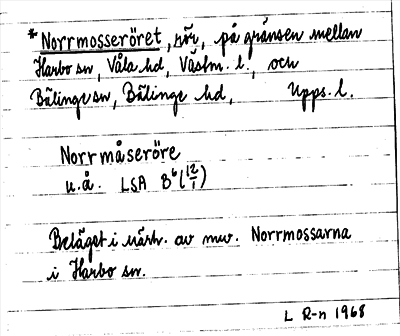 * Norrmosseröret, rör, på gränsen mellan
Harbo sn, Våla hd, Västm. l., och
Bälinge sn, Bälinge hd, Upps. l.
Norrmåseröre
u.å. LSA B⁶(12/1)
Beläget i närh. av nuv. Norrmossarna
i Harbo sn.
L R-n 1968